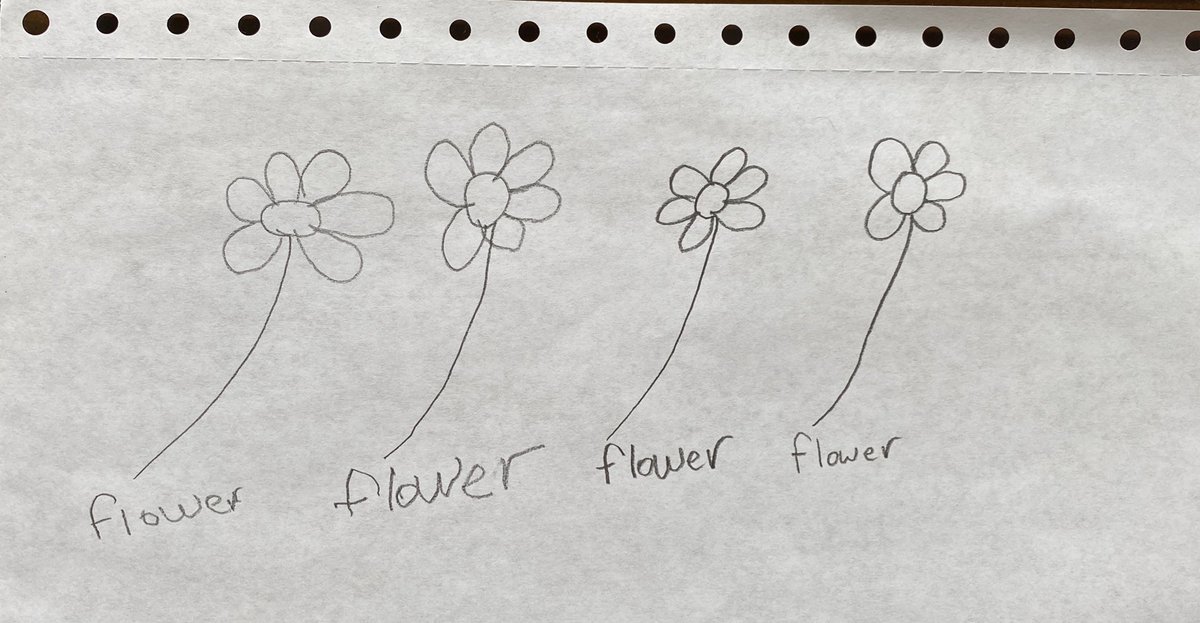 flower flower flower flower